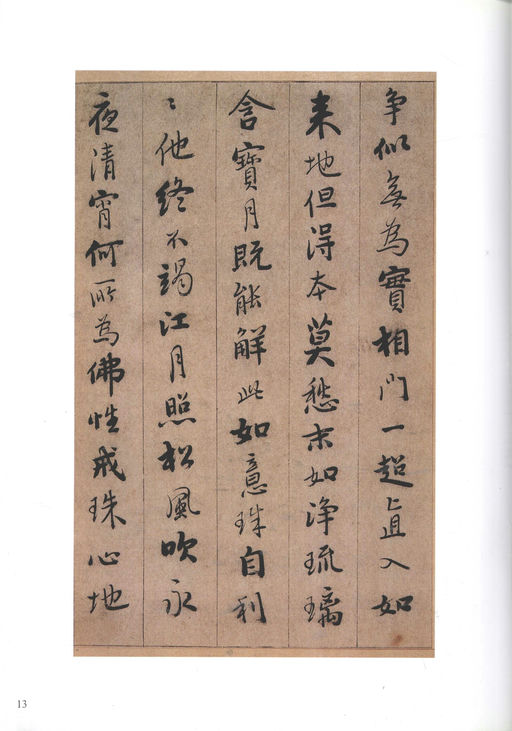 争似無為實相門一超直入如
来地但得本莫愁末如淨琉璃
含寶月既能解此如意珠自利
〻他終不竭江月照松風吹永
夜清宵何所為佛性戒珠心地
13